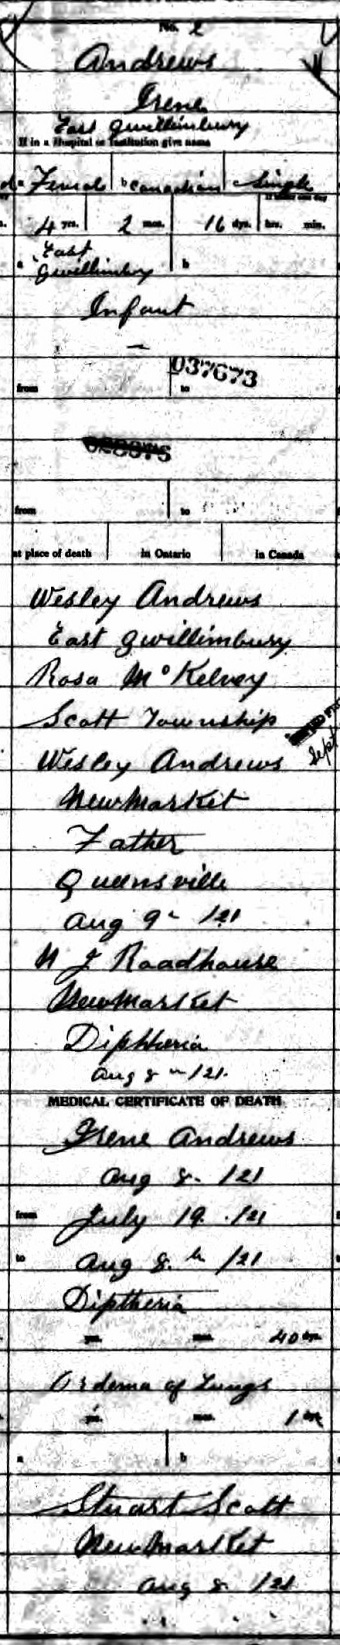 No. 2
Andrews
Irene
East Gwillimbury
If in a Hospital or Institution give name
Female b Canadian Single
4 yrs. 2 mos. 16 dys. hrs. min.
a East b
Gwillimbury
Infant
—
037673
from to
from to
at place of death in Ontario in Canada
Wesley Andrews
East Gwillimbury
Rosa McKelvey
Scott Township
Sept
Wesley Andrews
Newmarket
Father
Queensville
Aug 9th /21
N J Roadhouse
Newmarket
Diphtheria
Aug 8th /21.
MEDICAL CERTIFICATE OF DEATH
Irene Andrews
Aug 8. /21
from July 19. /21
to Aug 8.th /21
Diptheria
yrs. mos. 20 dys.
Oedema of Lungs
yrs. mos. 1 dys.
a b
Stuart Scott
Newmarket
Aug 8 /21